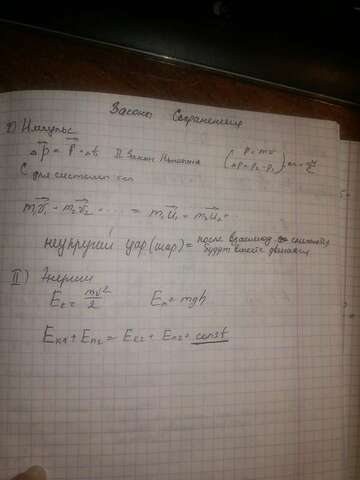 Законы Сохранения
I) Импульс
Δp⃗ = F⃗ · Δt II Закон Ньютона (p = mv Δp = p₂ - p₁)
C для системы тел
m₁v⃗₁ - m₂v⃗₂ ... = m₁u⃗₁ = m₂u⃗₂ ..
неупругий удар (шар) = после взаимод
будут вместе двигаться
II) Энергии
Eₖ = mv²/2 Eₙ = mgh
Eₖ₁ + Eₙ₂ = Eₖ₂ + Eₙ₂ = const